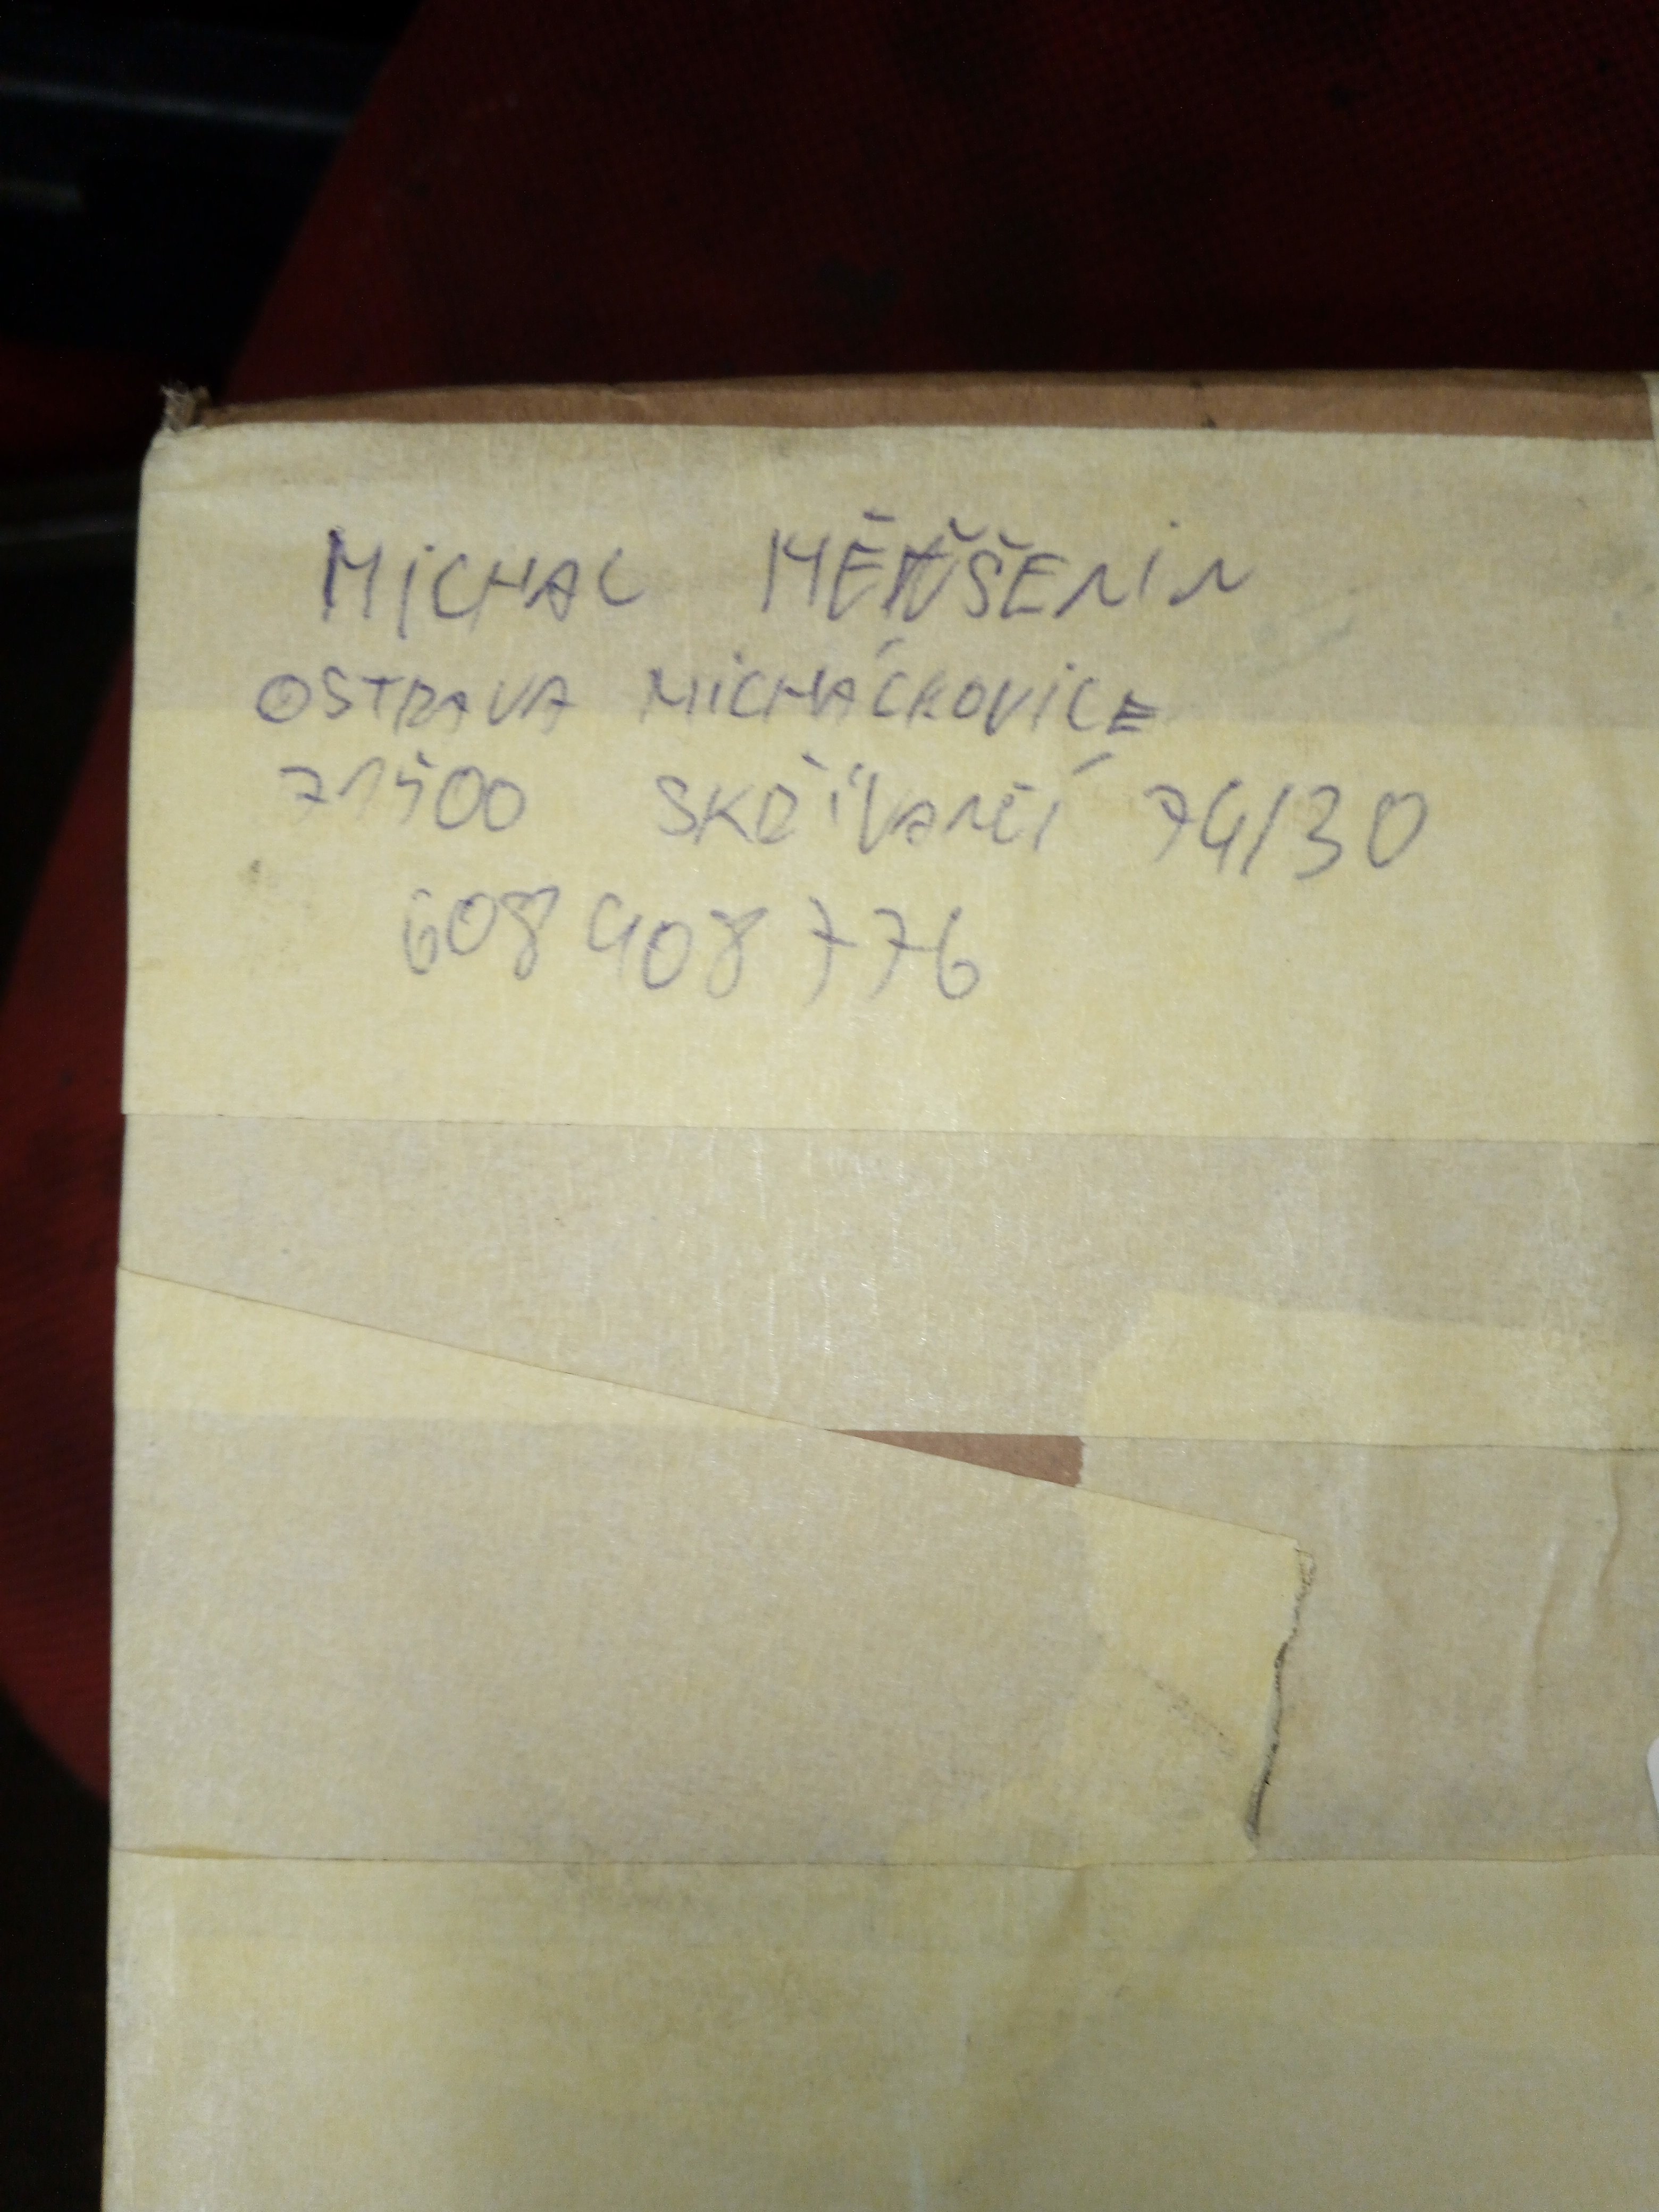 MICHAL
OSTRAVA MICHÁLKOVICE
71500 SKŘIVANČÍ 74/30
608 908 776